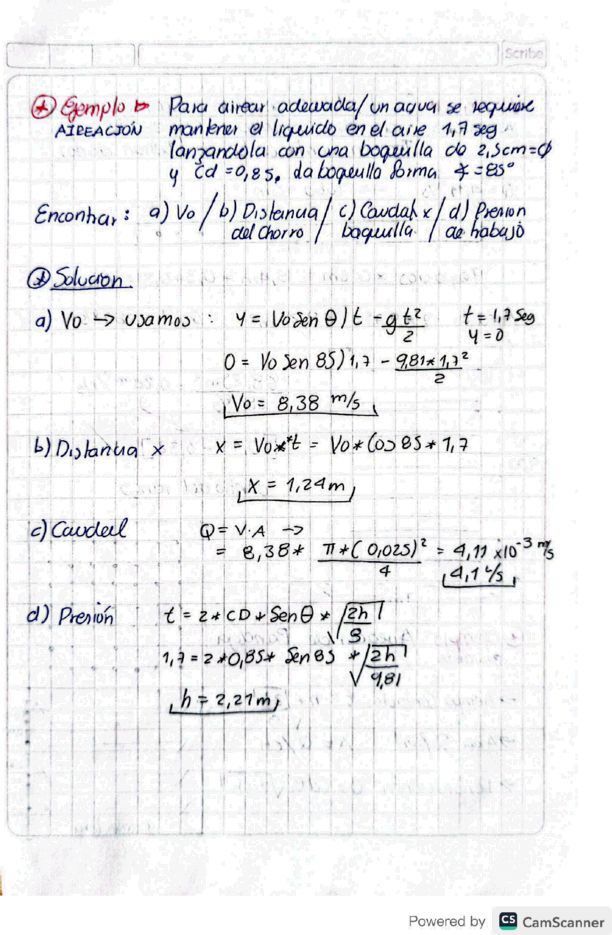 Scribe
⊛ Ejemplo ▷ Para airear adecuada/ un agua se requiere
AIREACIÓN mantener el liquido en el aire 1,7 seg
lanzandola con una boquilla de 2,5cm=Ø
y Cd=0,85, da boquilla forma ∡=85°
Encontrar: a) Vo / b) Distancia del Chorro / c) Caudal x baquilla / d) Presion de trabajo
⊛ Solucion
a) Vo → usamos : y = Vo Sen θ) t - gt²/2 t = 1,7 seg
y = 0
0 = Vo Sen 85) 1,7 - 9,81*1,7²/2
Vo = 8,38 m/s
b) Distancia x x = Vox*t = Vo*Cos 85 * 1,7
x = 1,24 m
c) Caudal Q = V.A →
= 8,38* π*(0,025)²/4 = 4,11 x10⁻³ m³/s
4,1 L/s
d) Presión t = 2 * CD * Sen θ * √2h/g
1,7 = 2*0,85* Sen 85 * √2h/9,81
h = 2,21 m
Powered by CS CamScanner